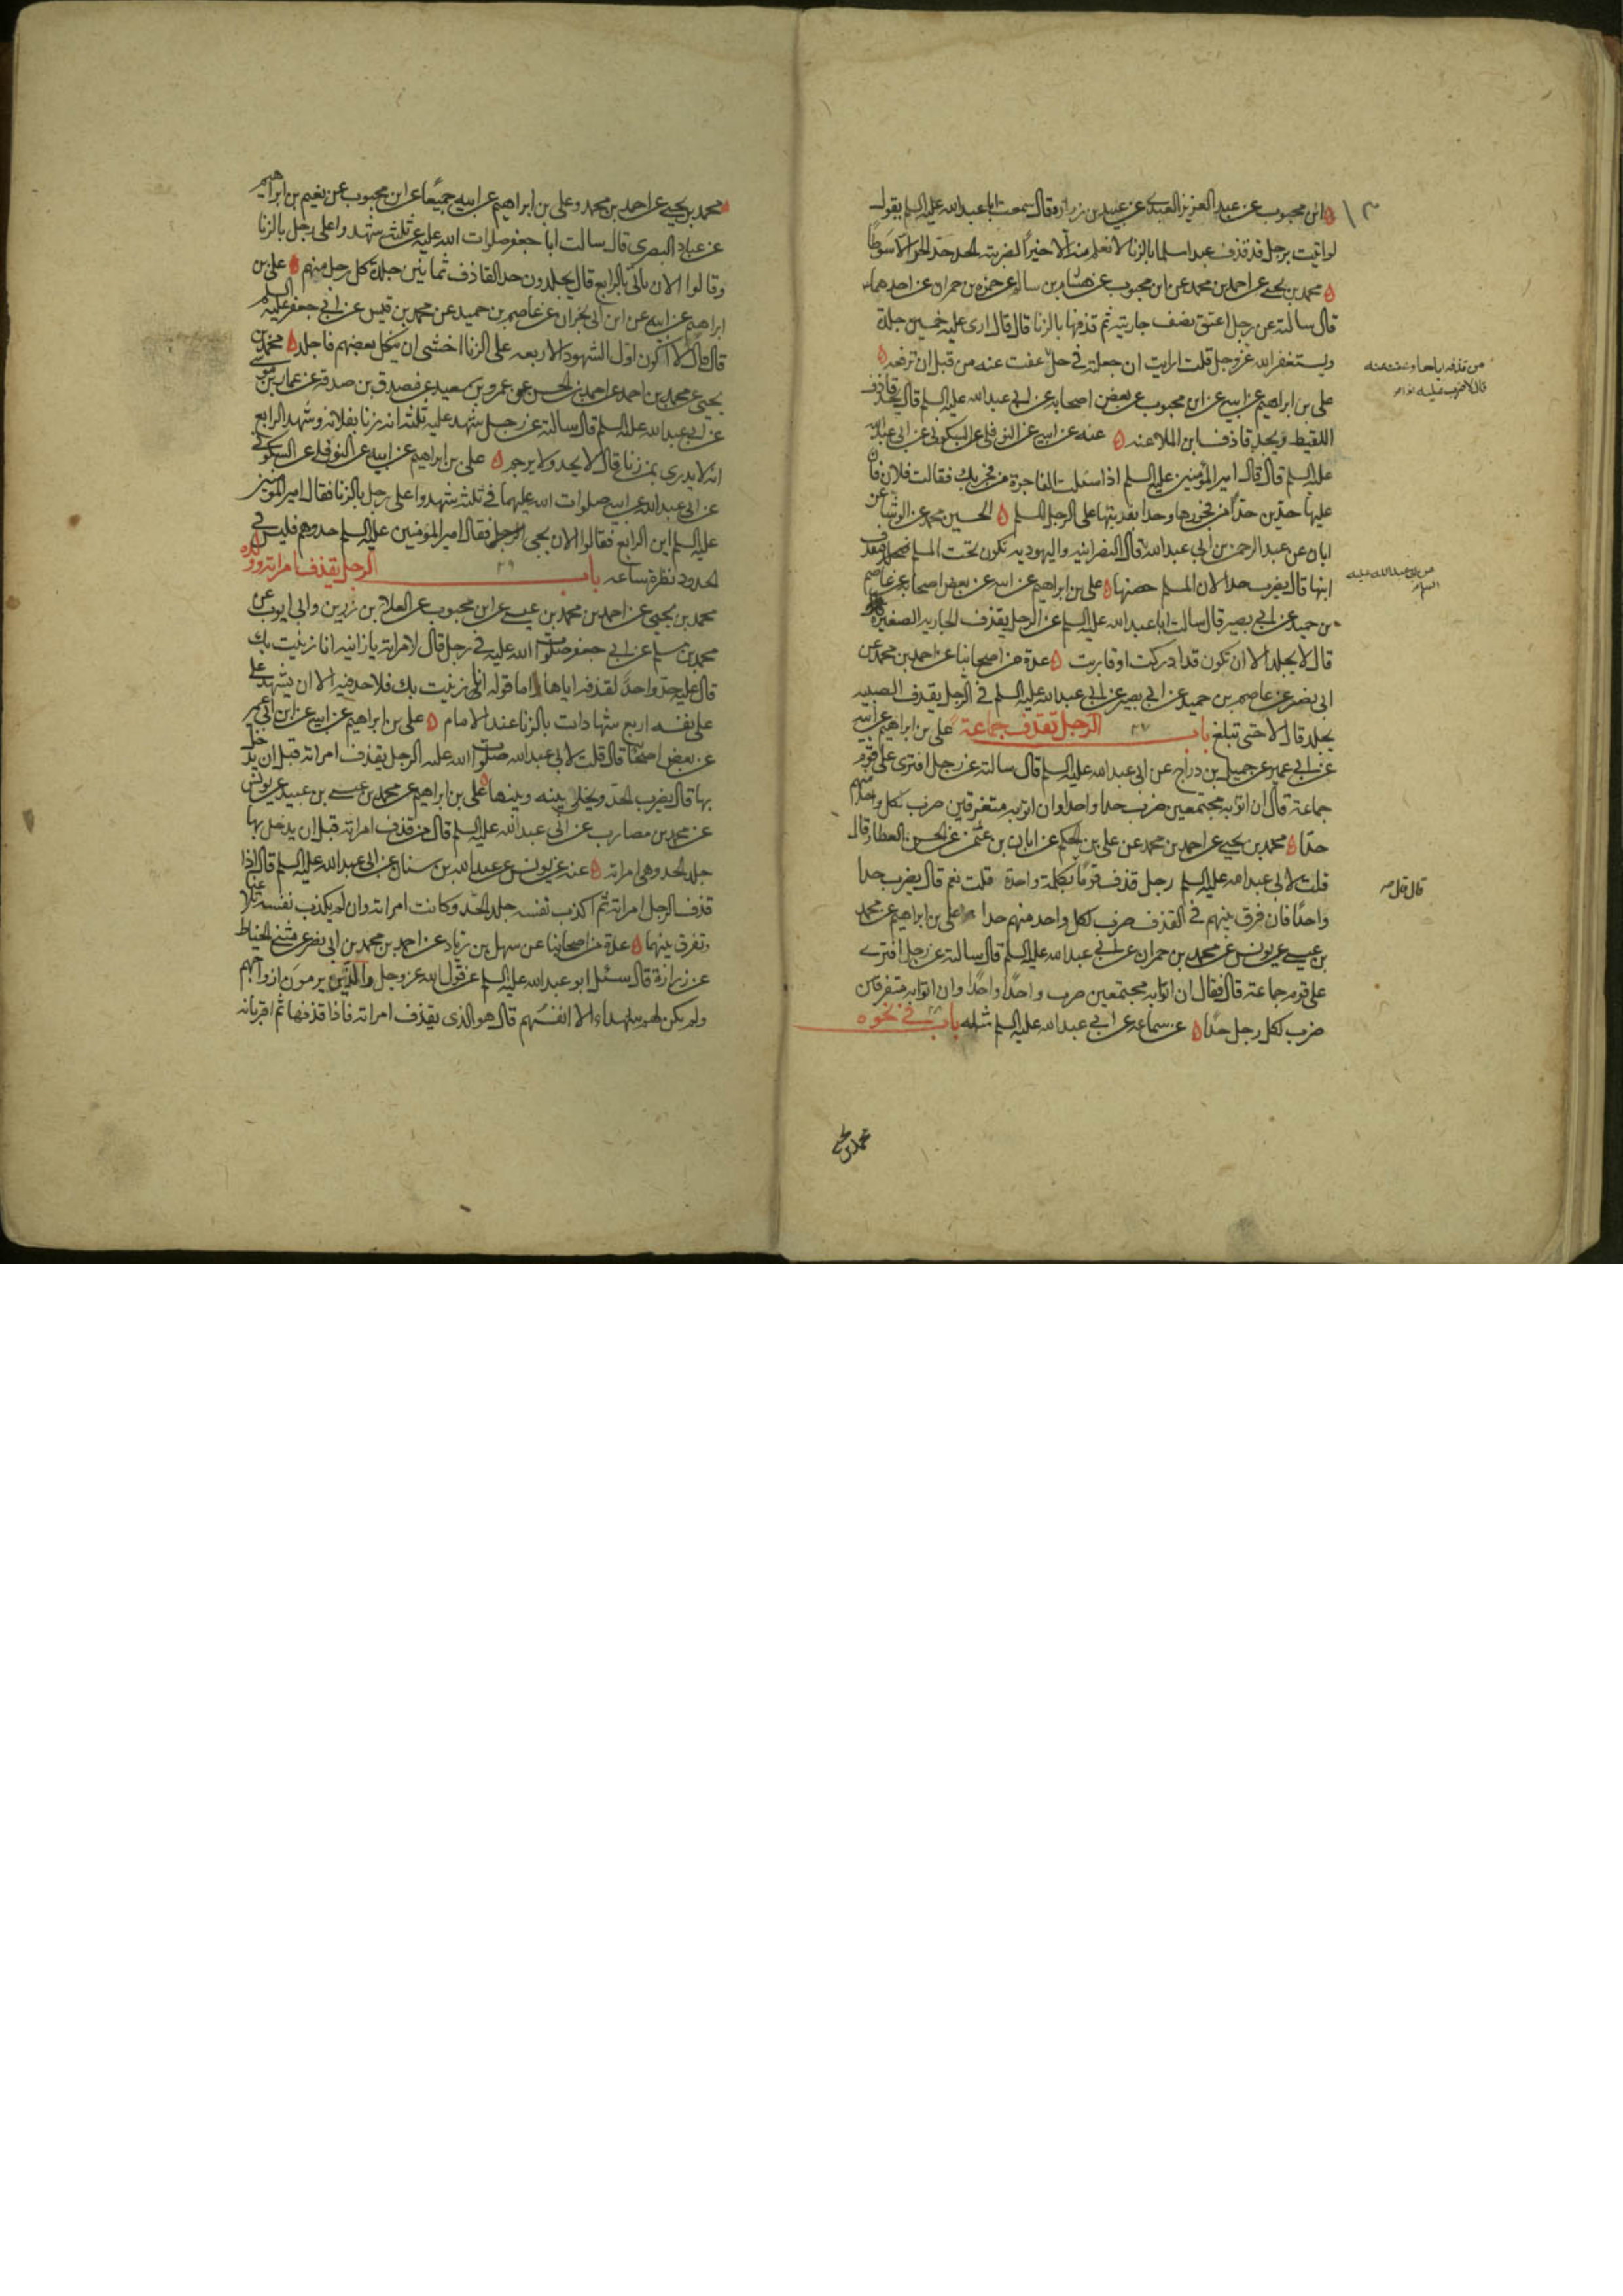 ابن محبوب عن عبد العزيز العبدي عن عبيد بن زرارة قال سمعت ابا عبد الله عليه السلم يقول
لو اتيت برجل قد قذف عبدا مسلما بالزنا لا نعلم منه الا خيرا لضربته الحد حد الحر الا سوطا
محمد بن يحيى عن احمد بن محمد عن ابن محبوب عن هشام بن سالم عن حمزه بن حمران عن احدهما
قال سالته عن رجل اعتق نصف جاريته ثم قذفها بالزنا قال قال ارى عليه خمسين جلدة
ويستغفر الله عز وجل قلت ارايت ان جعلته في حل وعفت عنه من قبل ان ترفعه
من قذفه اياها وعفت عنه
قال لا ضرب عليه اذا
علي بن ابراهيم عن ابيه عن ابن محبوب عن بعض اصحابه عن ابي عبد الله عليه السلم قال يحد قاذف
اللقيط ويحد قاذف ابن الملاعنه عنه عن ابيه عن النوفلي عن السكوني عن ابي عبد الله
عليه السلم قال قال امير المؤمنين عليه السلم اذا سئلت الفاجرة من فجر بك فقالت فلان فان
عليها حدين حدا من فجورها وحدا بفريتها على الرجل المسلم الحسين بن محمد عن الوشا عن
ابان عن عبد الرحمن بن ابي عبد الله قال النصرانيه واليهوديه تكون تحت المسلم فيقذف
عن ابي عبد الله عليه السلم
ابنها قال يضرب حدا لان المسلم حصنها علي بن ابراهيم عن ابيه عن بعض اصحابه عن عاصم
بن حميد عن ابي بصير قال سالت ابا عبد الله عليه السلم عن الرجل يقذف الجاريه الصغيرة
قال لا يجلد الا ان تكون قد ادركت او قاربت عدة من اصحابنا عن احمد بن محمد عن
ابي نصر عن عاصم بن حميد عن ابي بصير عن ابي عبد الله عليه السلم في الرجل يقذف الصبيه
يجلد قال لا حتى تبلغ باب ٢٧ الرجل يقذف جماعة علي بن ابراهيم عن ابيه
عن ابي عمير عن جميل بن دراج عن ابي عبد الله عليه السلم قال سالته عن رجل افترى على قوم
جماعة قال ان اتوا به مجتمعين ضرب حدا واحدا وان اتوا به متفرقين ضرب لكل واحد منهم
حدا محمد بن يحيى عن احمد بن محمد عن علي بن الحكم عن ابان بن عثمن عن الحسن العطار قال
قلت لابي عبد الله عليه السلم رجل قذف قوما بكلمة واحدة قلت نعم قال يضرب حدا
واحدا فان فرق بينهم في القذف ضرب لكل واحد منهم حدا علي بن ابراهيم عن محمد
بن عيسى عن يونس عن محمد بن حمران عن ابي عبد الله عليه السلم قال سالته عن رجل افترى
على قوم جماعة قال فقال ان اتوا به مجتمعين ضرب حدا واحدا وان اتوا به متفرقين
ضرب لكل رجل حدا عن سماعه عن ابي عبد الله عليه السلم مثله باب في نحوه
محمد بن يحيى
محمد بن يحيى عن احمد بن محمد وعلي بن ابراهيم عن ابيه جميعا عن ابن محبوب عن نعيم بن ابراهيم
عن عباد البصري قال سالت ابا جعفر صلوات الله عليه عن ثلثة شهدوا على رجل بالزنا
وقالوا الان ياتي بالرابع قال يجلدون حد القاذف ثمانين جلدة كل رجل منهم علي بن
ابراهيم عن ابيه عن ابن ابي نجران عن عاصم بن حميد عن محمد بن قيس عن ابي جعفر عليه السلم
قال قال لا اكون اول الشهود الاربعه على الزنا اخشى ان ينكل بعضهم فاجلد محمد بن
يحيى عن محمد بن احمد عن احمد بن الحسن عن عمرو بن سعيد عن مصدق بن صدقة عن عمار بن موسى
عن ابي عبد الله عليه السلم قال سالته عن رجل شهد عليه ثلثة انه زنا بفلانه وشهد الرابع
انه لا يدري بمن زنا قال لا يحد ولا يرجم علي بن ابراهيم عن ابيه عن النوفلي عن السكوني
عن ابي عبد الله عن ابيه صلوات الله عليهما في ثلثة شهدوا على رجل بالزنا فقال امير المؤمنين
عليه السلم اين الرابع فقالوا الان يجيى فقال امير المؤمنين عليه السلم حدوهم فليس في
الحدود نظرة ساعه باب ٢٩ الرجل يقذف امراته وولده
محمد بن يحيى عن احمد بن محمد بن عيسى عن ابن محبوب عن العلا بن رزين وابي ايوب عن
محمد بن مسلم عن ابي جعفر صلوات الله عليه في رجل قال لامراته يا زانيه انا زنيت بك
قال عليه حد واحد لقذفه اياها واما قوله انا زنيت بك فلا حد فيه الا ان يشهد على
على نفسه اربع شهادات بالزنا عند الامام علي بن ابراهيم عن ابيه عن ابن ابي عمير
عن بعض اصحابنا قال قلت لابي عبد الله صلوات الله عليه الرجل يقذف امراته قبل ان يدخل
بها قال يضرب الحد ويخلى بينه وبينها علي بن ابراهيم عن محمد بن عيسى بن عبيد عن يونس
عن محمد بن مضارب عن ابي عبد الله عليه السلم قال من قذف امراته قبل ان يدخل بها
جلد الحد وهي امراته عنه عن يونس عن عبد الله بن سنان عن ابي عبد الله عليه السلم قال اذا
قذف الرجل امراته ثم اكذب نفسه جلد الحد وكانت امراته وان لم يكذب نفسه تلاعنا
وتفرق بينهما عدة من اصحابنا عن سهل بن زياد عن احمد بن محمد بن ابي نصر عن مثنى الحناط
عن زرارة قال سئل ابو عبد الله عليه السلم عن قول الله عز وجل والذين يرمون ازواجهم
ولم يكن لهم شهداء الا انفسهم قال هو الذي يقذف امراته فاذا قذفها ثم اقر بانه